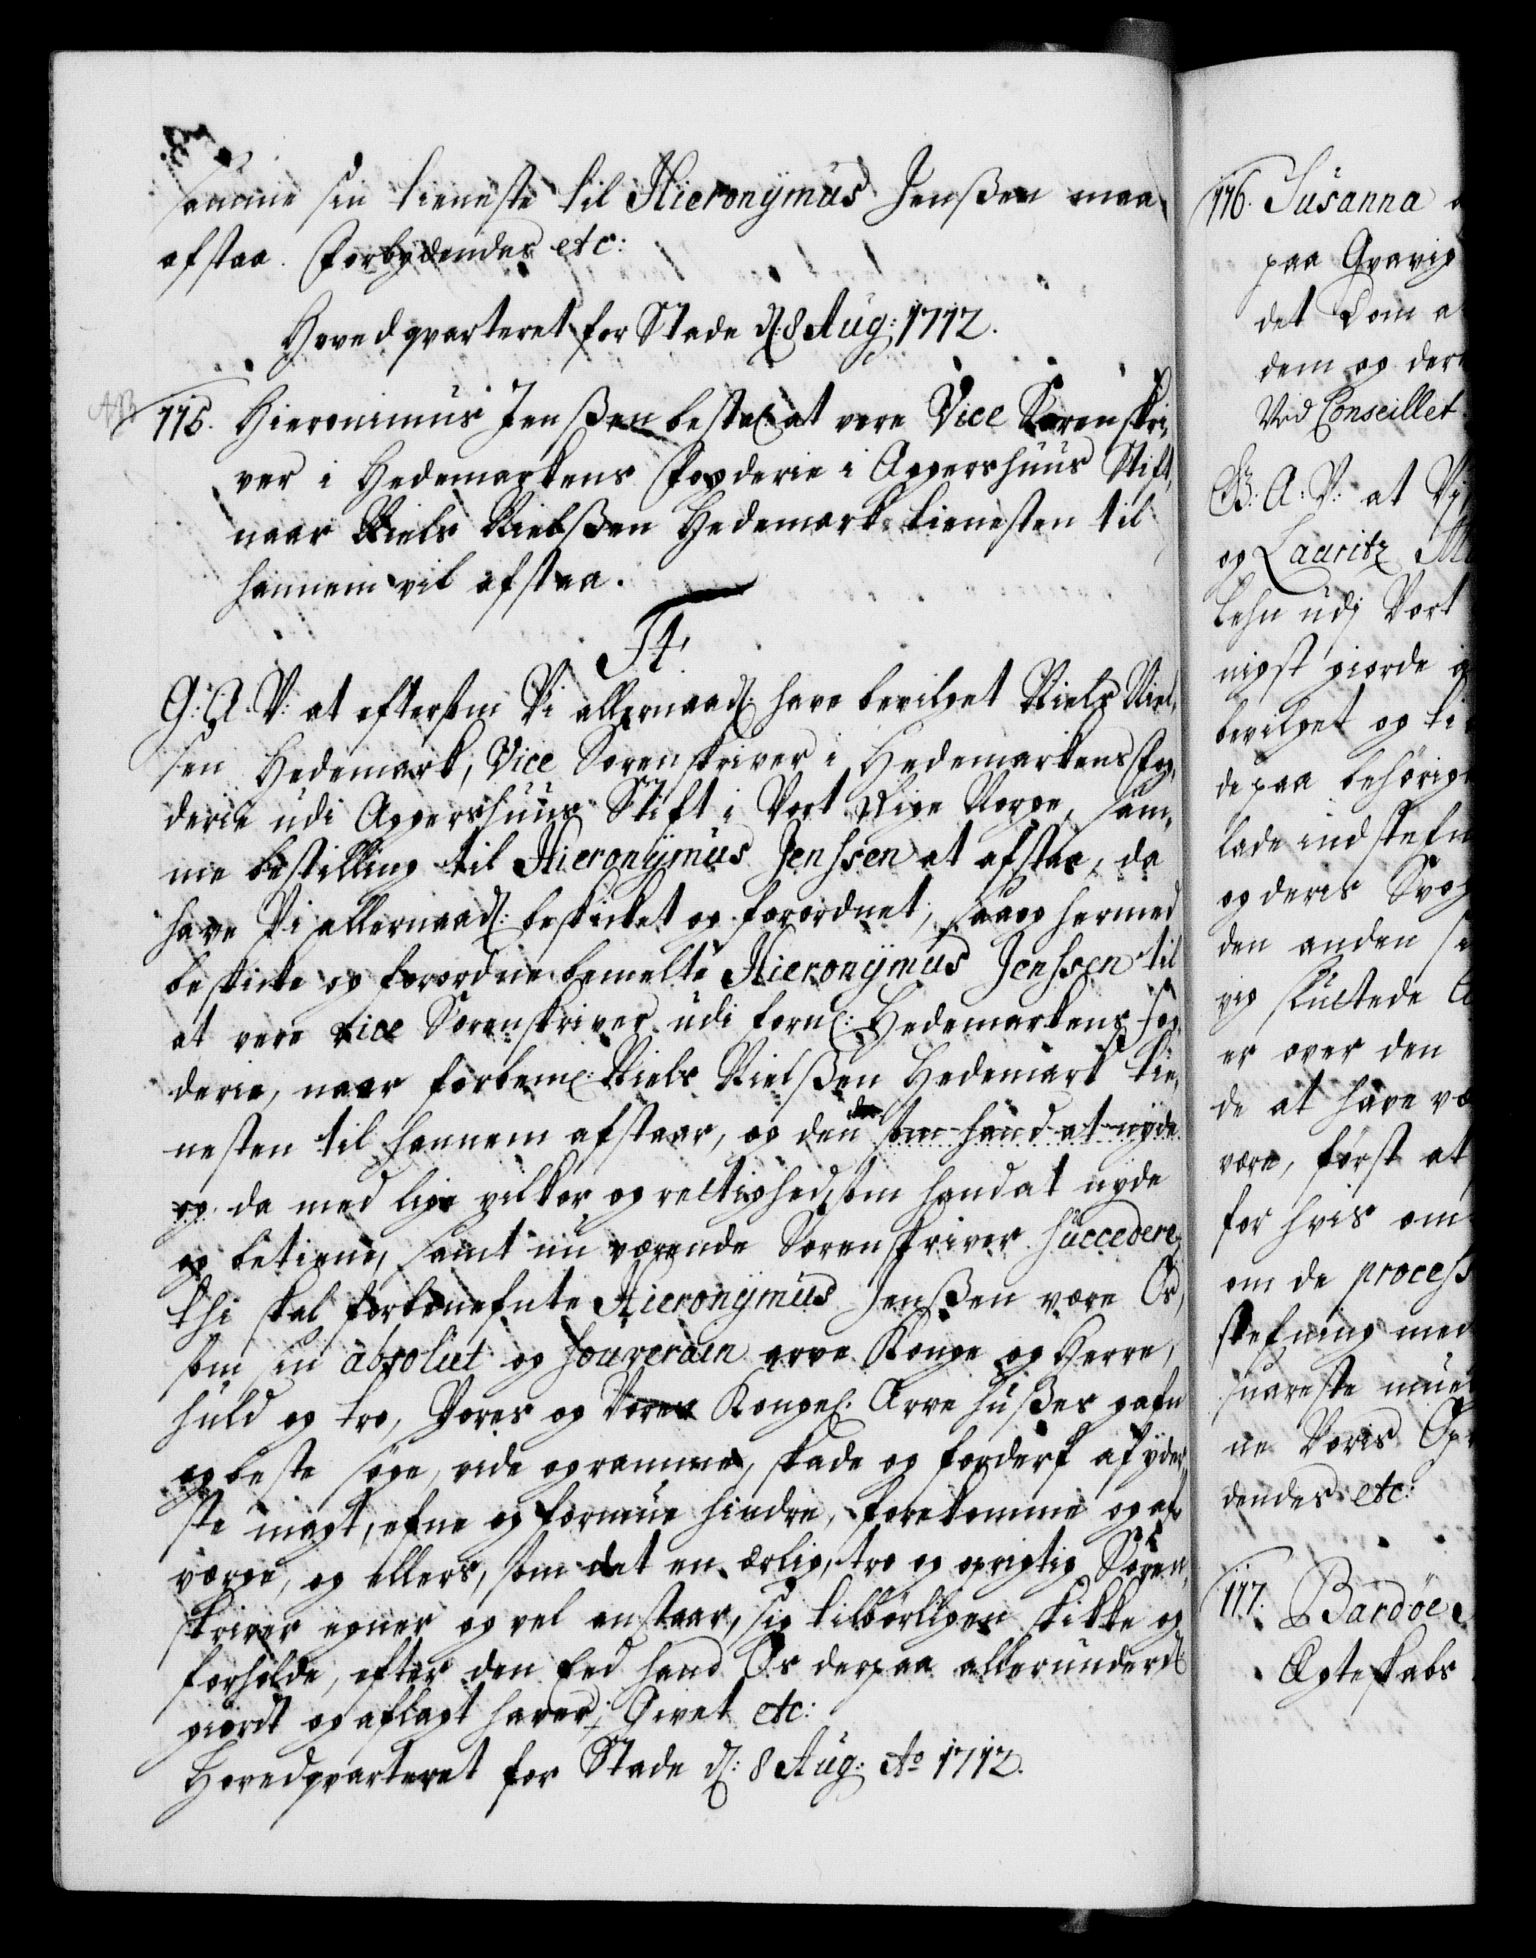 samme sin tieneste til Hieronÿmus Jenßen maa
afstaa. Forbydendes etc:
Hovedqvarteret for Stade d: 8 Aug: 1712.
115. Hieronimus Jenßen bestel: at vere Vice Sorenskri,
ver i Hedemarkens Fogderie i Aggershuus Stift,
naar Niels Nielßen Hedemark tienesten til
hannem vil afstaa.
F4.
G: A: V: at eftersom Vi allernaad: have bevilget Niels Niel,
sen Hedemark, Vice Sorenskriver i Hedemarkens Fog,
derie udi Aggershuus Stift i Vort Rige Norge, sam,
me bestilling til Hieronÿmus Jenssen at afstaa, da
have Vi allernaad: beskicket og forordnet, saa og hermed
beskicke og forordne bemelte Hieronÿmus Jenssen til
at vere vice Sorenskriver udi fornl: Hedemarkens Fog,
derie, naar forbeml: Niels Nielßen Hedemark tie,
nesten til hannem afstaar, og den som hand at nyde
og da med lige vilkor og rettighed, som hand at nyde
og betiene, samt nu værende Sorenskriver succedere,
thi skal forbenefnte Hieronÿmus Jenßen være Os,
som sin absolut og souverain arve Konge og Herre,
huld og tro, Vores og Vores Kongel: Arve Hußes gafn
og beste søge, vide og ramme, skade og forderf af yder,
ste magt, efne og formue hindre, forekomme og af,
værge, og ellers, som det en ærlig, tro og oprigtig Soren,
skriver egner og vel anstaar, sig tilbørligen skikke og
forholde, efter den Eed hand Os derpaa allerunderd:
giordt og aflagt haver; Givet etc:
Hovedqvarteret for Stade d: 8 Aug: Ao 1712.
116. Susanna
paa Gravig
det Dom a
dem og der
Ved Conseillet
G: A: V: at Vi
og Lauritz
Lehn udj Vort
nigst giorde
bevilget og ti
de paa behørig
lade indstefn
og deris Svog
den anden
vig sluttede
er over den
de at have væ
være, først at
for hvis om
om de process
stefning med
suareste
ne Voris
dendes etc:
117. Bardøe
Ægteskabs